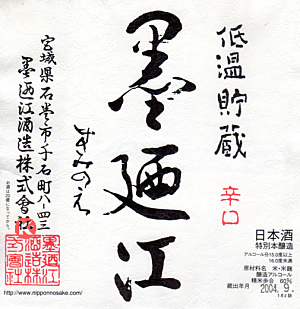 低温貯蔵
辛口
墨廼江
すみのえ
宮城県石巻市千石町八ー四三
墨廼江酒造株式會社
お酒は20歳になってから。
墨廼江
酒造株
式會社
http://www.nipponnosake.com/
日本酒
特別本醸造
アルコール分15.0度以上
16.0度未満
原材料名 米・米麹
醸造アルコール
精米歩合 60%
蔵出年月 2004.9.